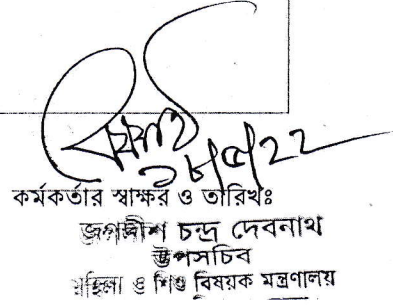 ১৮/৫/২২
কর্মকর্তার স্বাক্ষর ও তারিখঃ
জগদীশ চন্দ্র দেবনাথ
উপসচিব
মহিলা ও শিশু বিষয়ক মন্ত্রণালয়